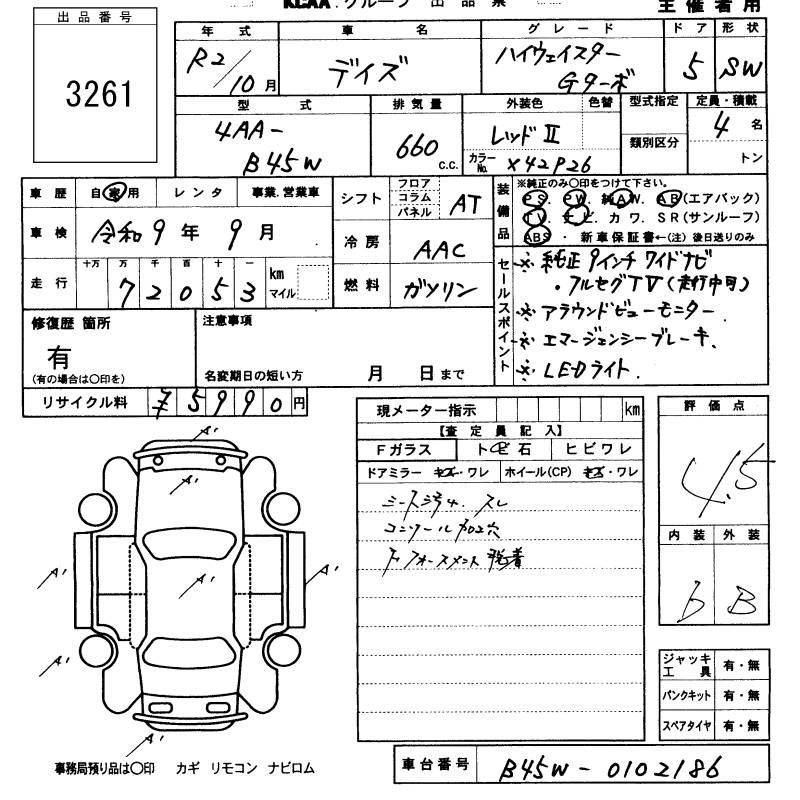 KCAA.グループ 出品票
主催者用
出品番号
3261
年式 車名 グレード ドア 形状
R2/10月 デイズ ハイウェイスター Gターボ 5 SW
型式 排気量 外装色 色替 型式指定 定員・積載
4AA-B45W 660 c.c. レッドII
カラーNo. X42P26
類別区分
4名
トン
車歴 自家用 レンタ 事業.営業車
車検 令和9年9月
走行 十万 万 千 百 十 一
72053 km マイル
シフト フロア コラム パネル AT
冷房 AAC
燃料 ガソリン
装備品
※純正のみ〇印をつけて下さい。
PS. PW. 純AW. AB(エアバック)
TV. ナビ. カワ. SR(サンルーフ)
ABS ・ 新車保証書←(注)後日送りのみ
セールスポイント
※ 純正9インチワイドナビ
・フルセグTV(走行中可)
※ アラウンドビューモニター
※ エマージェンシーブレーキ.
※ LEDライト.
修復歴 箇所
有
(有の場合は〇印を)
注意事項
名変期日の短い方 月 日まで
リサイクル料 ¥5990円
現メーター指示 km
【査定員記入】
Fガラス トビ石 ヒビワレ
ドアミラー キズ・ワレ ホイール(CP) キズ・ワレ
シート汚れ. スレ
コンソール加工穴
脱着
評価点
4.5
内装 外装
b B
ジャッキ工具 有・無
パンクキット 有・無
スペアタイヤ 有・無
A'
A'
A'
A'
A'
A'
A'
A'
事務局預り品は〇印 カギ リモコン ナビロム
車台番号 B45W-0102186